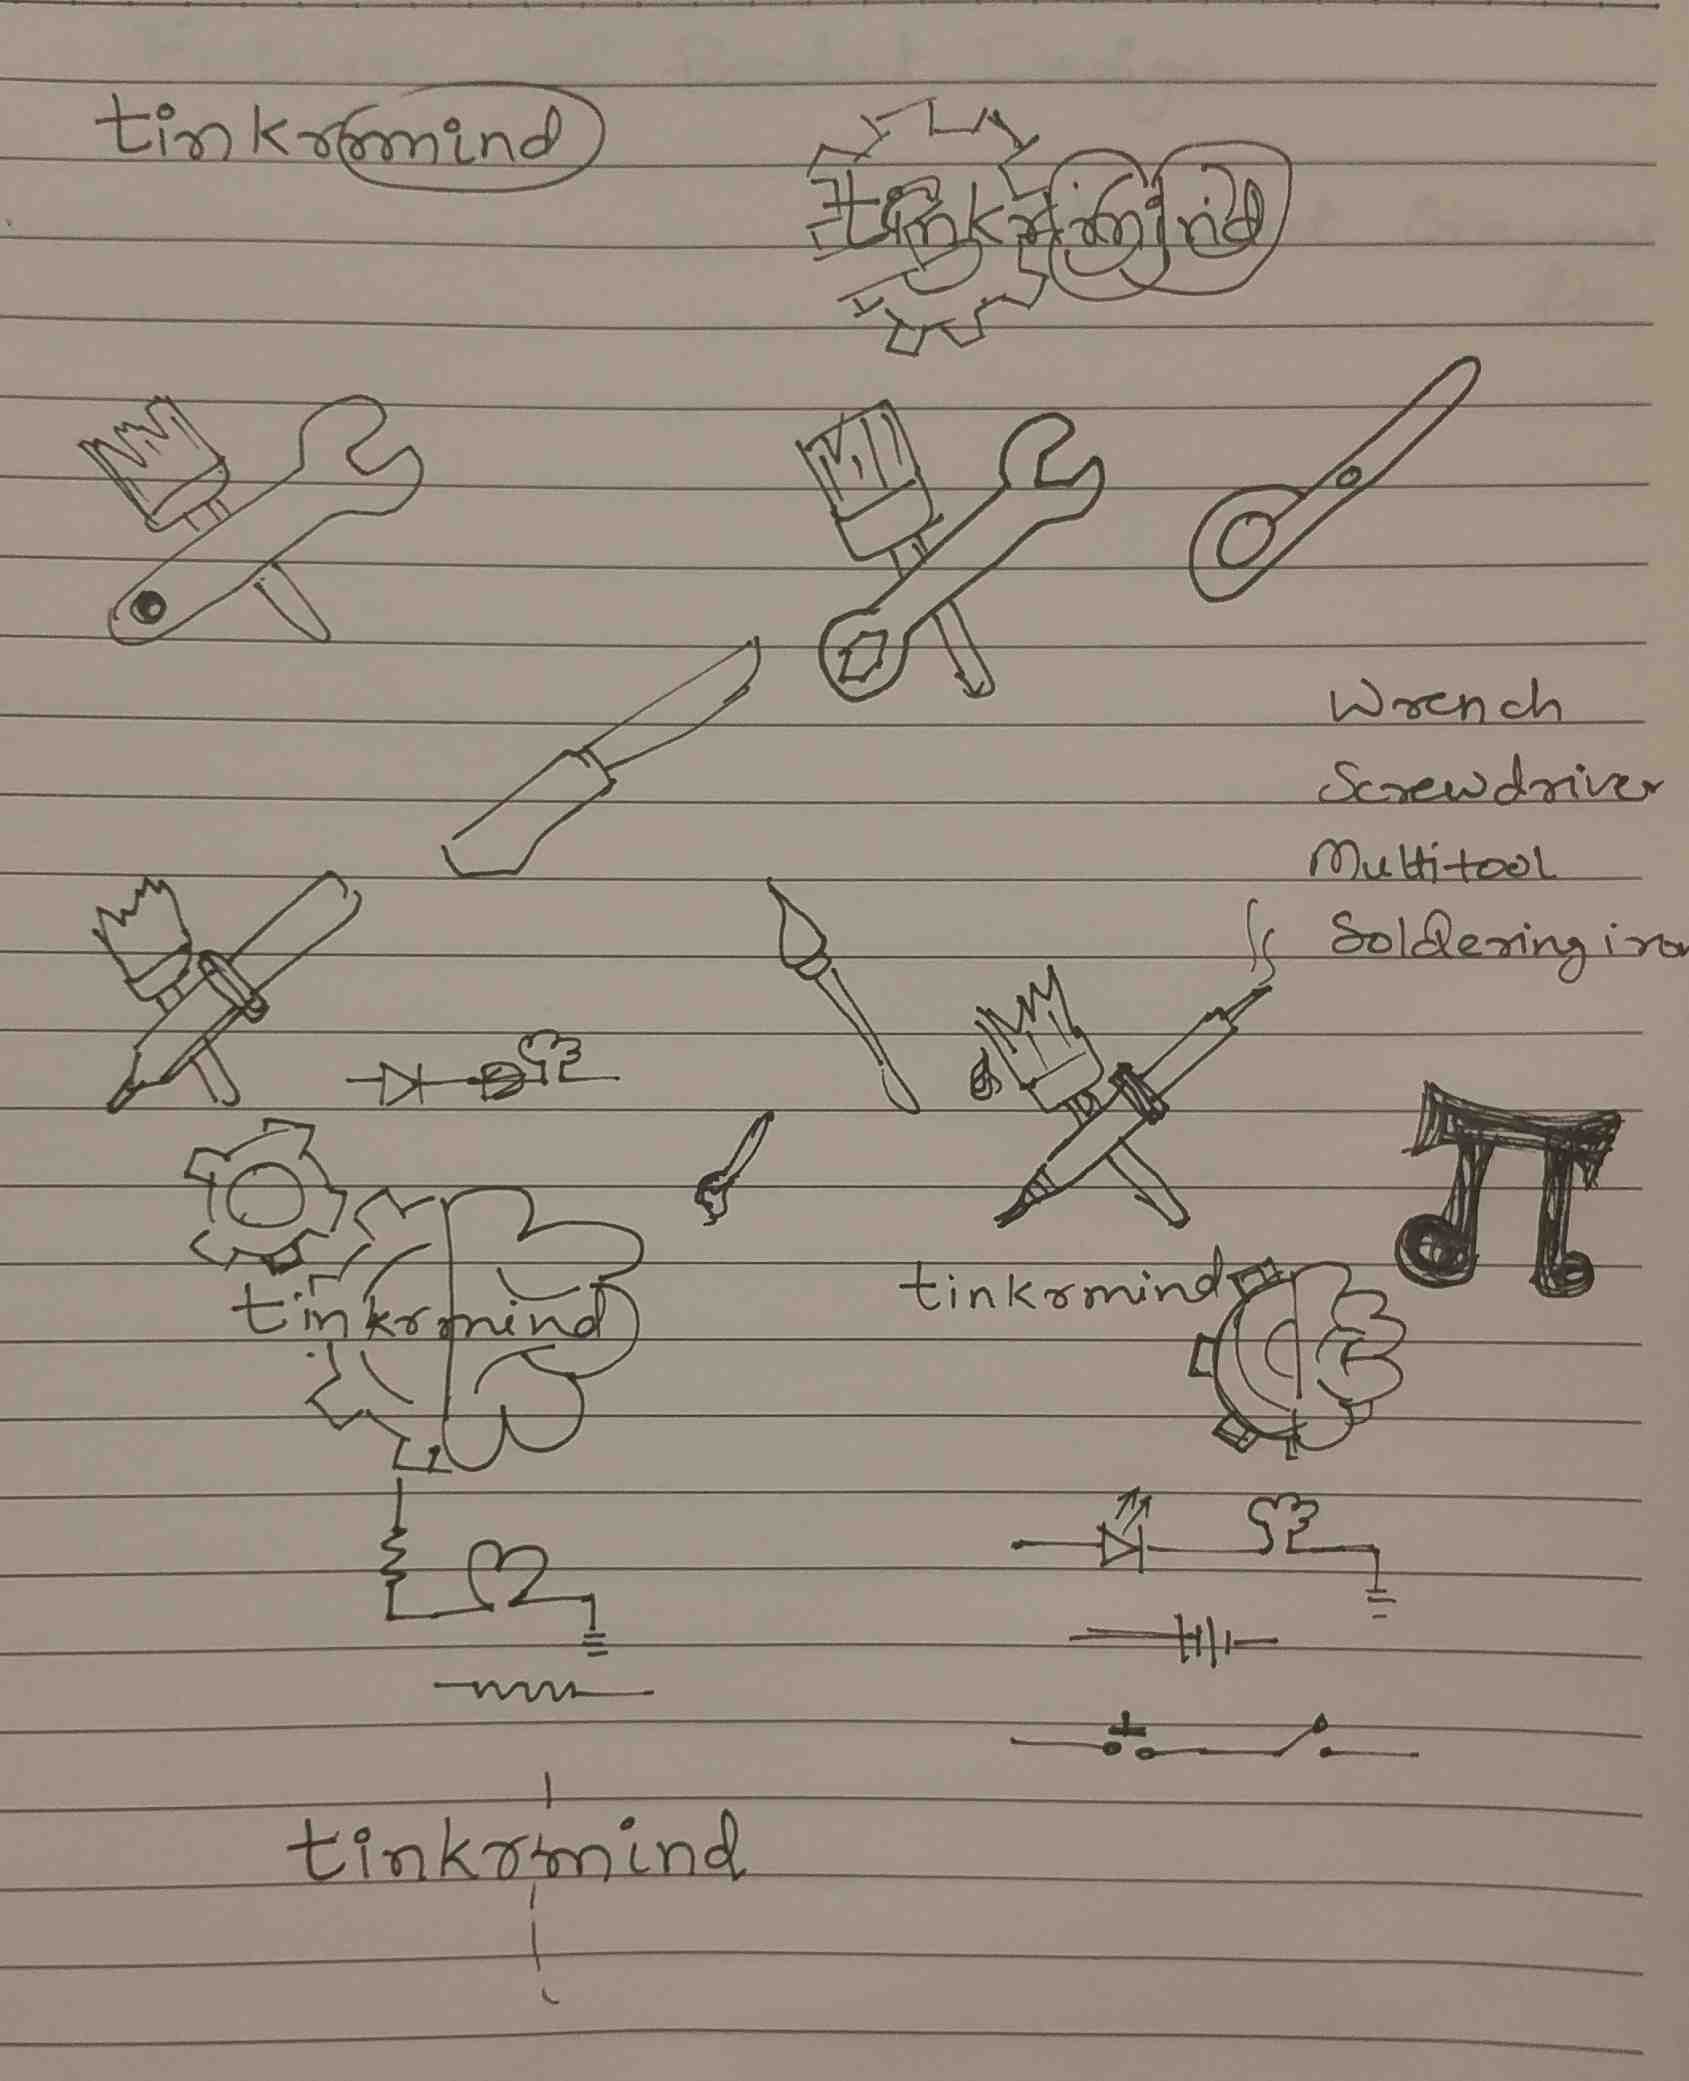 tinkrmind
tinkrmind
Wrench
Screwdriver
Multitool
Soldering iron
tinkrmind
tinkrmind
tinkrmind